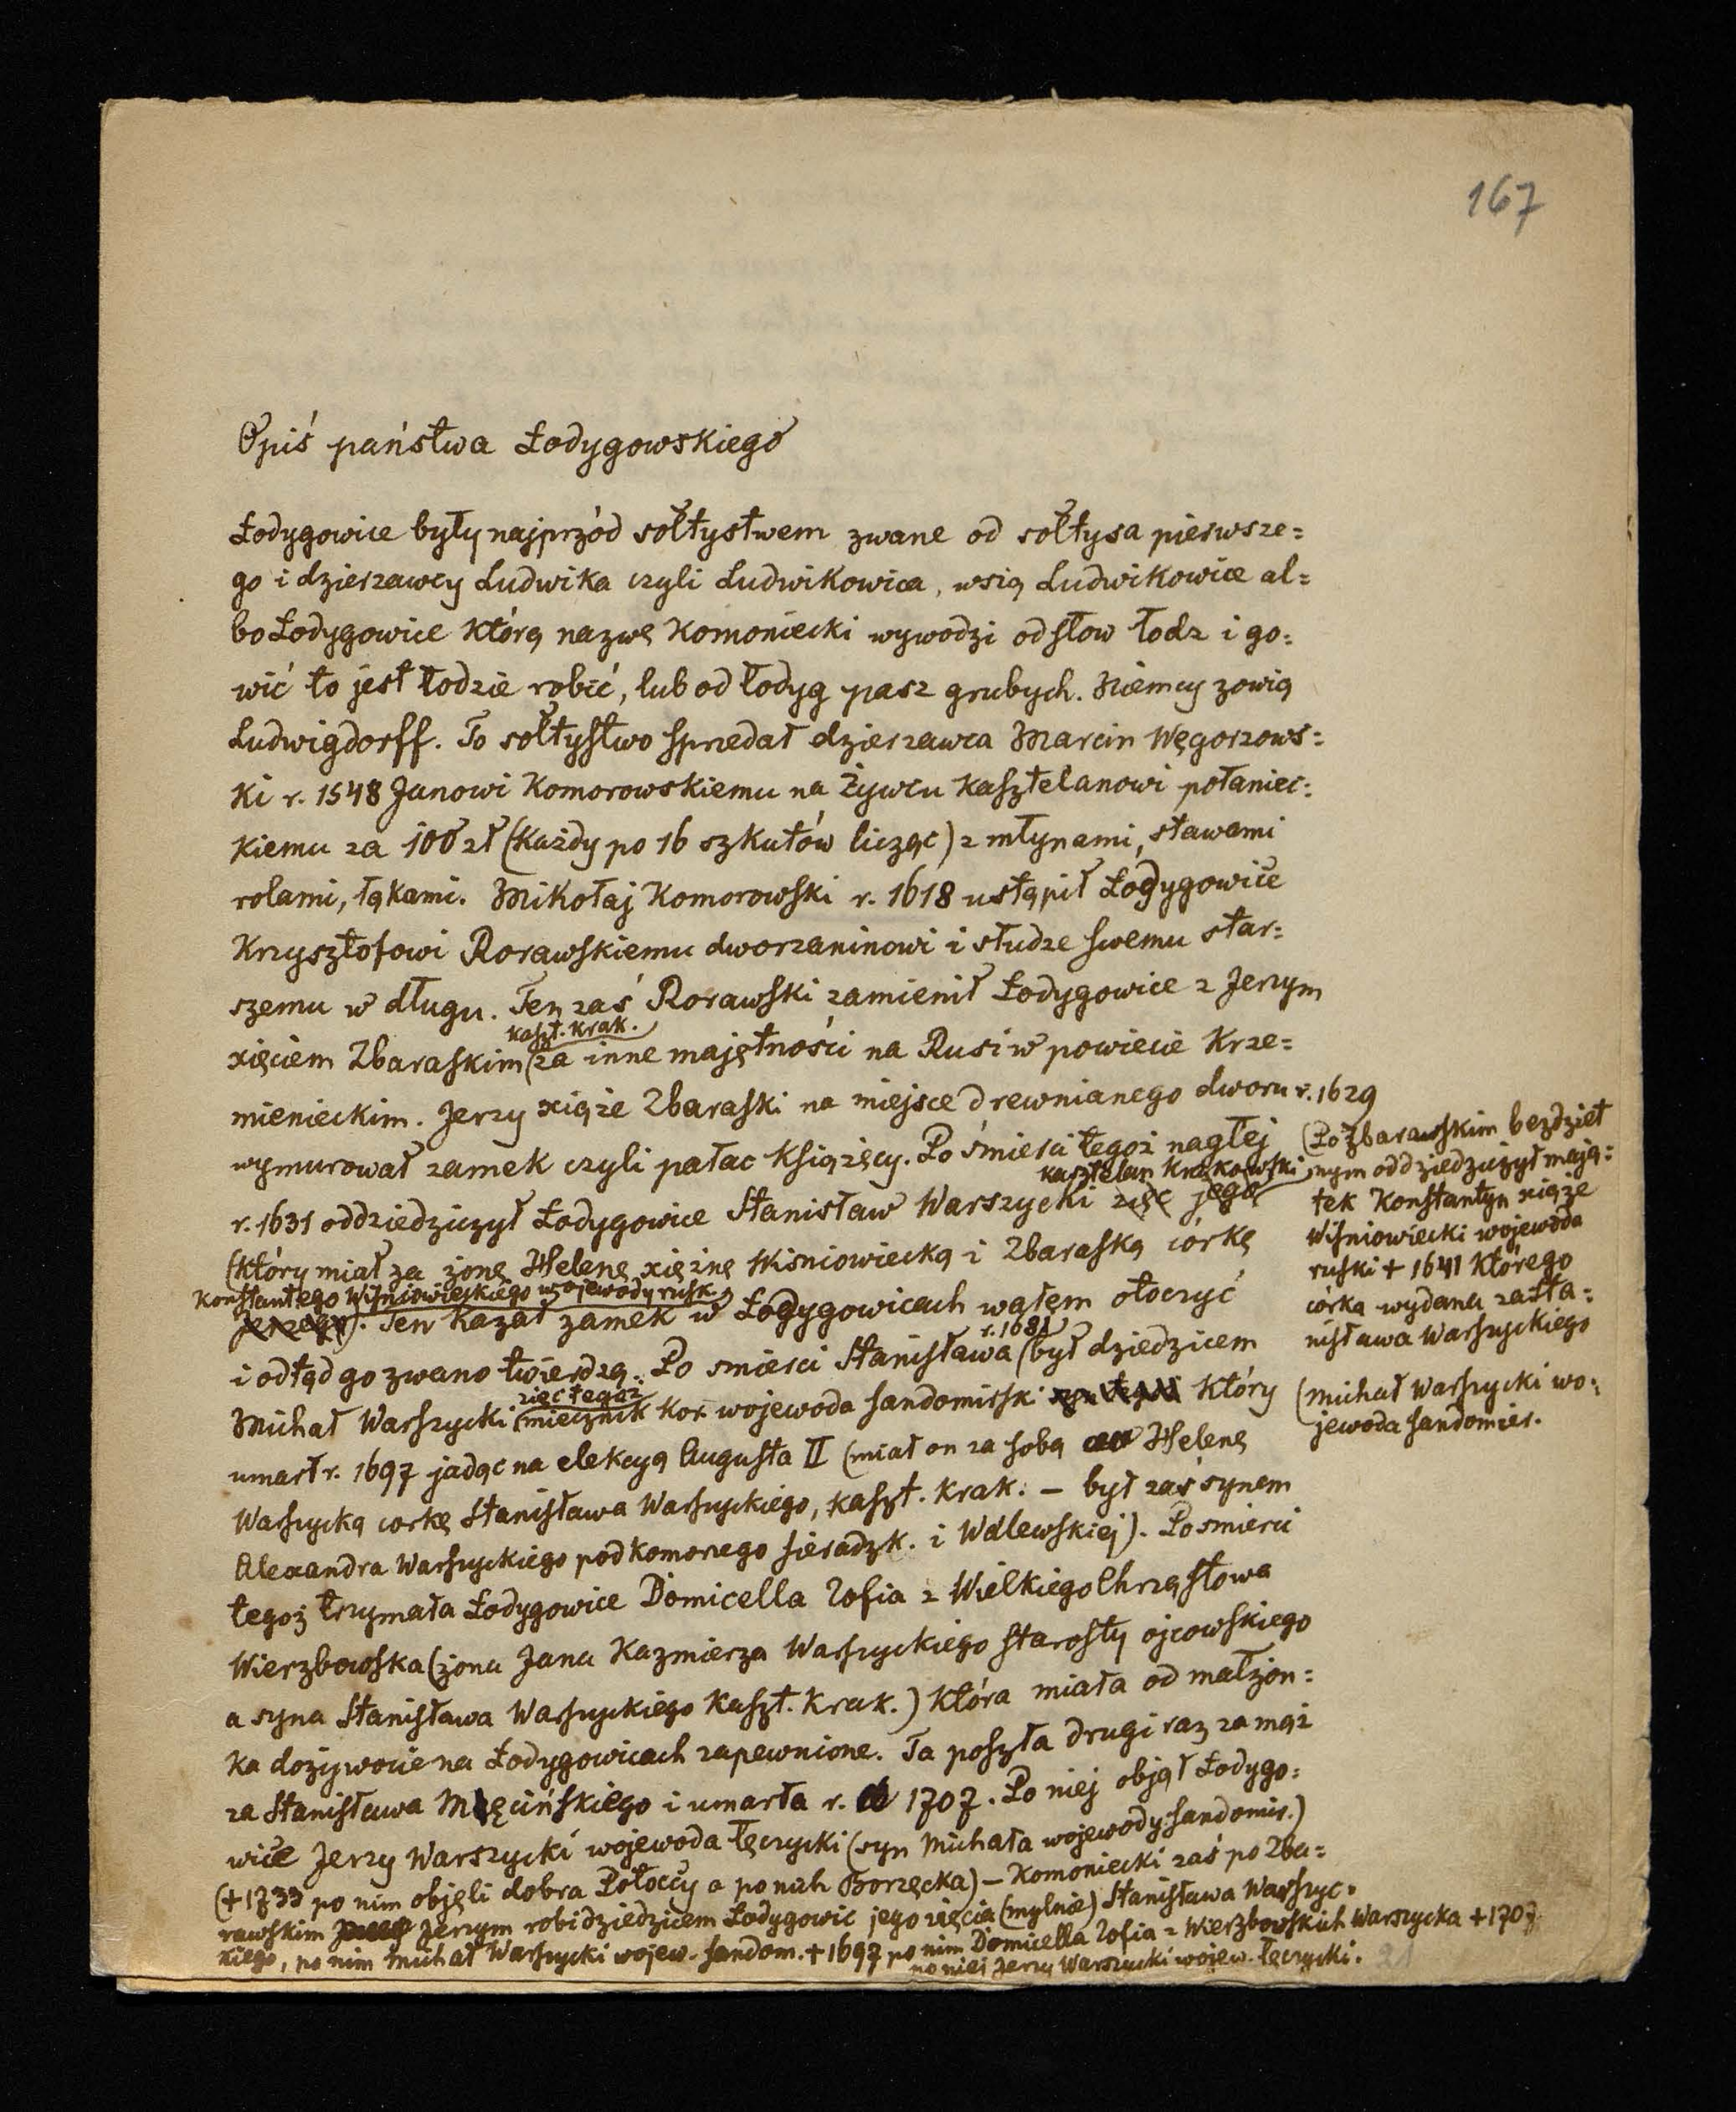 167
Opis państwa Łodygowskiego
Łodygowice były najprzód sołtystwem zwane od sołtysa pierwsze=
go i dzierzawcy Ludwika czyli Ludwikowica, wsią Ludwikowice al=
bo Łodygowice którą nazwę Komoniecki wywodzi od słow łodz i go=
wić to jest łodzie robić, lub od łodyg pasz grubych. Niemcy zowią
Ludwigdorff. To sołtystwo sprzedał dzierzawca Marcin Węgorzows=
ki r. 1548 Janowi Komorowskiemu na Żywcu kasztelanowi połaniec=
kiemu za 100 zł (każdy po 16 szkutów licząc) z młynami, stawami
rolami, łąkami. Mikołaj Komorowski r. 1618 ustąpił Łodygowice
Krzysztofowi Rorawskiemu dworzaninowi i słudze swemu star=
szemu w długu. Ten zaś Rorawski zamienił Łodygowice z Jerzym
kaszt. krak.
xięciem Zbaraskim (za inne majętności na Rusi w powiecie Krze=
mienieckim. Jerzy xiąże Zbaraski na miejsce drewnianego dworu r. 1629
wymurował zamek czyli pałac książęcy. Po śmierci tegoż nagłej
kasztelan krakowski
r. 1631 oddziedziczył Łodygowice Stanisław Warszycki zięć jego
(który miał za żonę Helenę xiężnę Wiśniowiecką i Zbaraską córkę
Konstantego Wiśniowieckiego wojewody rusk.
Jerzego). Ten kazał zamek w Łodygowicach wałem otoczyć
r. 1681
i odtąd go zwano twierdzą. Po smierci Stanisława (był dziedzicem
zięć tegoż
Michał Warszycki (miecznik kor. wojewoda sandomirsk który
umarł r. 1697 jadąc na elekcyą Augusta II (miał on za sobą Helenę
Warszycką corkę Stanisława Warszyckiego, kaszt. krak. – był zaś synem
Alexandra Warszyckiego podkomorzego sieradzk. i Walewskiej). Po smierci
tegoż trzymała Łodygowice Domicella Zofia z Wielkiego Chrząstowa
Wierzbowska (żona Jana Kazmierza Warszyckiego starosty ojcowskiego
a syna Stanisława Warszyckiego kaszt. krak.) która miała od małżon=
ka dożywocie na Łodygowicach zapewnione. Ta poszła drugi raz za mąż
za Stanisława Męcińskiego i umarła r. 1707. Po niej objął Łodygo=
wice Jerzy Warszycki wojewoda łęczycki (syn Michała wojewody sandomir.)
(+1733 po nim objęli dobra Potoccy a po nich Borzęcka) – Komoniecki zaś po Zba=
rawskim Jerzym robi dziedzicem Łodygowic jego zięcia (mylnie) Stanisława Warszyc=
kiego, po nim Michał Warszycki wojew. sandom. +1697 po nim Domicella Zofia z Wierzbowskich Warszycka +1707
po niej Jerzy Warszycki wojew. łęczycki.
(Po Zbarawskim bezdziet
nym oddziedziczył mają=
tek Konstantyn xiąże
Wiśniowiecki wojewoda
ruski + 1641 którego
córka wydana za Sta=
nisława Warszyckiego
(Michał Warszycki wo=
jewoda sandomier.